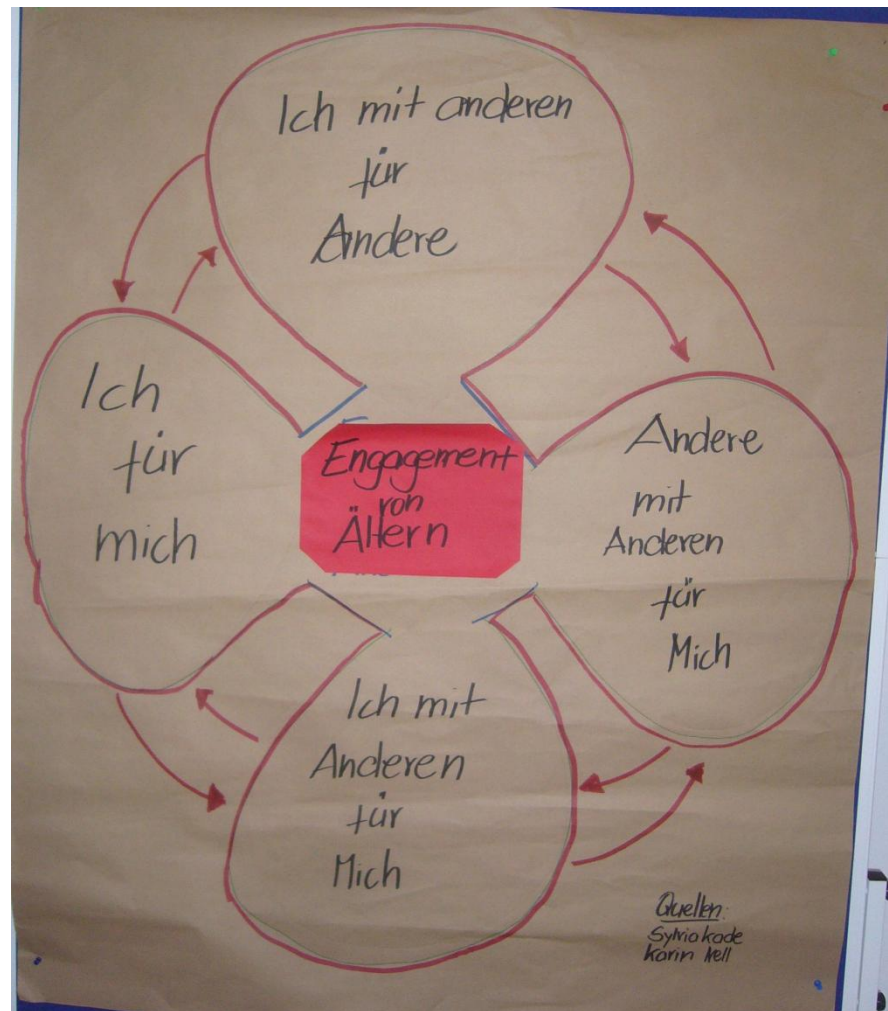 Ich mit anderen
für
Andere
Ich
für
mich
Engagement
von
Ältern
Andere
mit
Anderen
für
Mich
Ich mit
Anderen
für
Mich
Quellen:
Sylvia Kade
Karin Nell